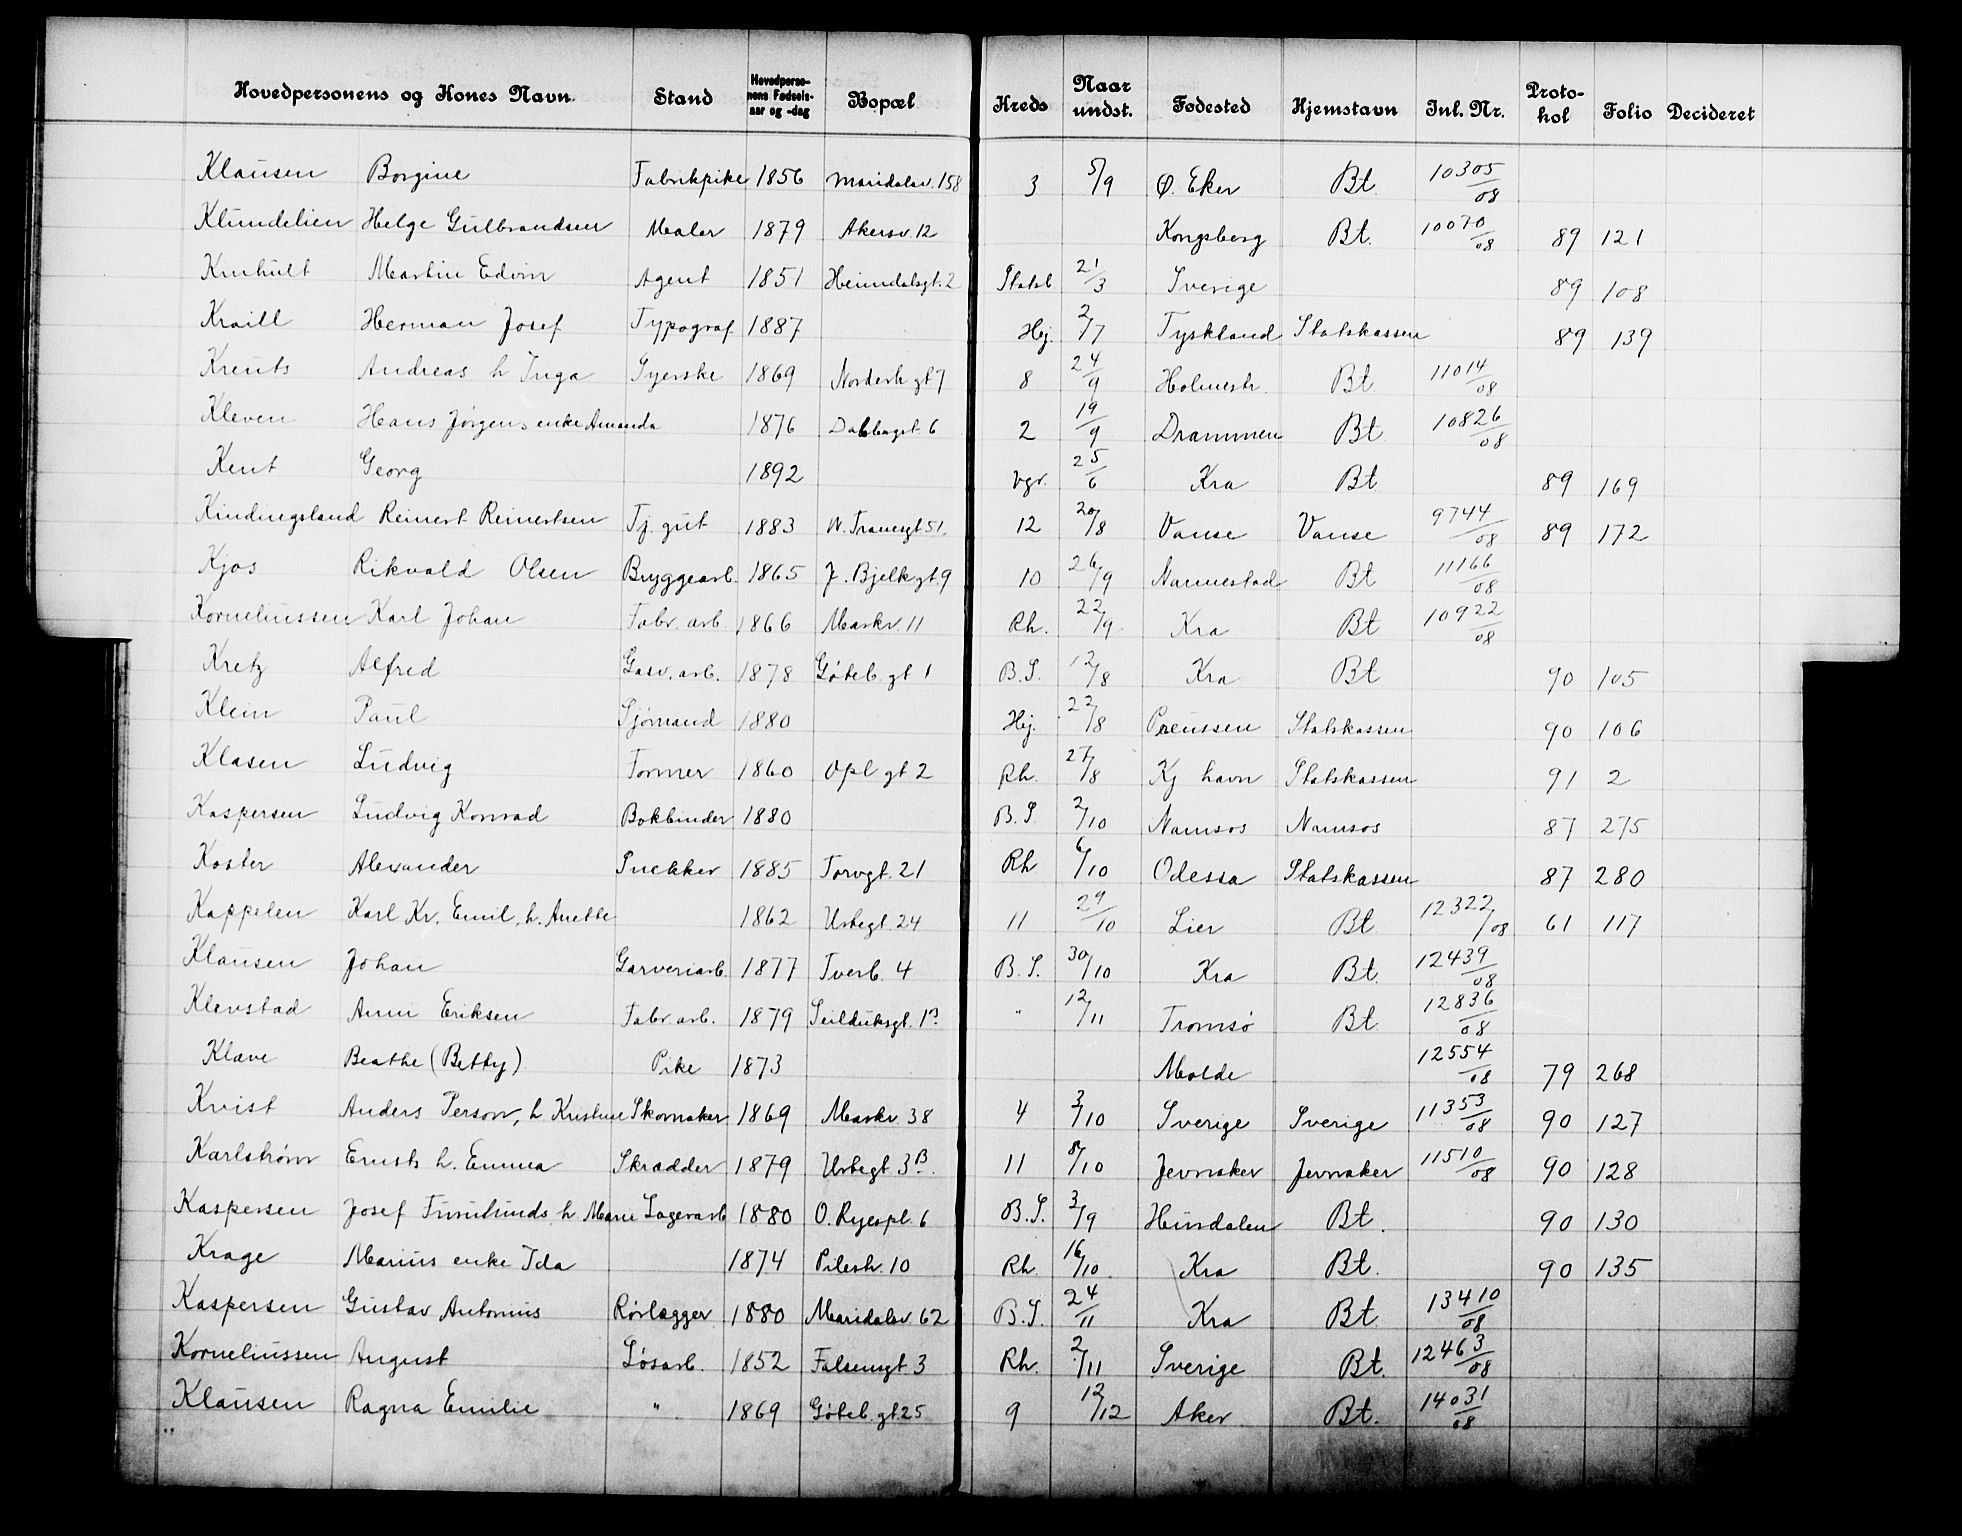 Hovedpersonens og Kones Navn. Stand Hovedpersonens Fødselsaar og -dag Bopæl Kreds Naar undst. Fødested Hjemstavn Inl. Nr. Protokol Folio Decideret
Klausen Borgine Fabrikpike 1856 Maridalsv. 158 3 5/9 Ø. Eker Bt. 10305/08
Klundelien Helge Gulbrandsen Maler 1879 Akersv. 12 Kongsberg Bt. 10070/08 89 121
Kinhult Martin Edvin Agent 1851 Heimdalsgt. 2 Statsb 21/3 Sverige 89 108
Kraill Herman Josef Typograf 1887 Hej. 2/7 Tyskland Statskassen 89 139
Kreuts Andreas h Inga Syerske 1869 Norderh gt 7 8 24/9 Holmestr. Bt. 11014/08
Kleven Hans Jørgens enke Amanda 1876 Dalsbergst. 6 2 19/9 Drammen Bt. 10826/08
Kent Georg 1892 Vgr. 25/6 Kra Bt. 89 169
Kindingsland Reinert Reinertsen Tj. gut 1883 N. Tranesgt 51. 12 20/8 Vanse Vanse 9744/08 89 172
Kjos Rikvald Olsen Bryggearb. 1865 J. Bjelk gt. 9 10 26/9 Nannestad Bt 11166/08
Korneliussen Karl Johan Fabr. arb. 1866 Markv. 11 Rh. 22/9 Kra Bt 10922/08
Kretz Alfred Gasv. arb. 1878 Göteb. gt 1 B. S. 12/8 Kra Bt 90 105
Klein Paul Sjömand 1880 Hej. 22/8 Preussen Statskassen 90 106
Klasen Ludvig Former 1860 Opl gt 2 Rh. 27/8 Kj havn Statskassen 91 2
Kaspersen Ludvig Konrad Bokbinder 1880 B. S. 2/10 Namsos Namsos 87 275
Koster Alexander Snekker 1885 Torvgt. 21 Rh 6/10 Odessa Statskassen 87 280
Kappelen Karl Kr. Emil, h. Anette 1862 Urtegt. 24 11 29/10 Lier Bt 12322/08 61 117
Klausen Johan Garveriarb. 1877 Tverb. 4 B. S. 30/10 Kra Bt. 12439/08
Klevstad Anni Eriksen Fabr arb. 1879 Seilduksgt. 1B " 12/11 Tromsø Bt. 12836/08
Klave Beathe (Betty) Pike 1873 Molde 12554/08 79 268
Kvist Anders Person, h Kristine Skomaker 1869 Markv. 38 4 3/10 Sverige Sverige 11353/08 90 127
Karlstrøm Ernst h. Emma Skrædder 1879 Urtegt 3B. 11 8/10 Jevnaker Jevnaker 11510/08 90 128
Kaspersen Josef h. Marie Lagerarb 1880 O. Ryespl. 6 B. S. 3/9 Hurdalen Bt. 90 130
Krage Marius enke Ida 1874 Pilestr. 10 Rh. 16/10 Kra Bt. 90 135
Kaspersen Gustav Antonius Rørlægger 1880 Maridalsv. 62 B. S. 24/11 Kra Bt. 13410/08
Korneliussen August Løsarb. 1852 Falsensgt. 3 Rh. 2/11 Sverige Bt. 12463/08
Klausen Ragna Emilie " 1869 Göteb. gt. 25 9 12/12 Aker Bt. 14031/08